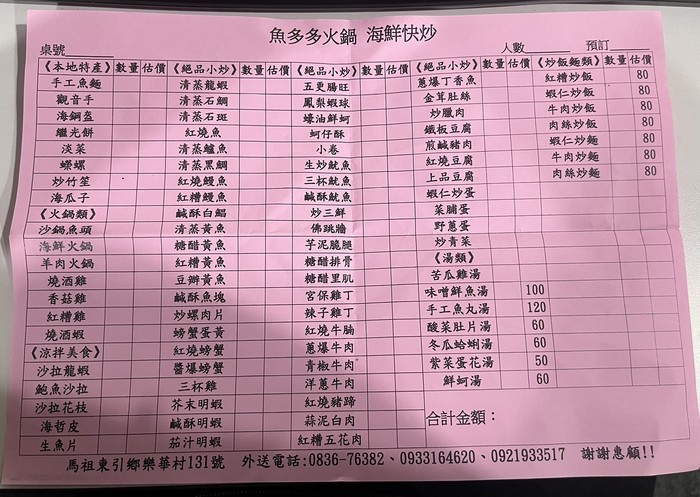 魚多多火鍋 海鮮快炒
桌號
人數
預訂
《本地特產》 數量 估價
手工魚麵
觀音手
海鋼盔
繼光餅
淡菜
蠑螺
炒竹筀
海瓜子
《火鍋類》
沙鍋魚頭
海鮮火鍋
羊肉火鍋
燒酒雞
香菇雞
紅糟雞
燒酒蝦
《涼拌美食》
沙拉龍蝦
鮑魚沙拉
沙拉花枝
海哲皮
生魚片
《絕品小炒》 數量 估價
清蒸龍蝦
清蒸石鯛
清蒸石斑
紅燒魚
清蒸鱸魚
清蒸黑鯛
紅燒鰻魚
紅糟鰻魚
鹹酥白鯧
清蒸黃魚
糖醋黃魚
紅糟黃魚
豆瓣黃魚
鹹酥魚塊
炒螺肉片
螃蟹蛋黃
紅燒螃蟹
醬爆螃蟹
三杯雞
芥末明蝦
鹹酥明蝦
茄汁明蝦
《絕品小炒》 數量 估價
五更腸旺
鳳梨蝦球
蠔油鮮蚵
蚵仔酥
小卷
生炒魷魚
三杯魷魚
鹹酥魷魚
炒三鮮
佛跳牆
芋泥脆腿
糖醋排骨
糖醋里肌
宮保雞丁
辣子雞丁
紅燒牛腩
蔥爆牛肉
青椒牛肉
洋蔥牛肉
紅燒豬蹄
蒜泥白肉
紅糟五花肉
《絕品小炒》 數量 估價
蔥爆丁香魚
金茸肚絲
炒臘肉
鐵板豆腐
煎鹹豬肉
紅燒豆腐
上品豆腐
蝦仁炒蛋
菜脯蛋
野蔥蛋
炒青菜
《湯類》
苦瓜雞湯
味噌鮮魚湯 100
手工魚丸湯 120
酸菜肚片湯 60
冬瓜蛤蜊湯 60
紫菜蛋花湯 50
鮮蚵湯 60
《炒飯麵類》 數量 估價
紅糟炒飯 80
蝦仁炒飯 80
牛肉炒飯 80
肉絲炒飯 80
蝦仁炒麵 80
牛肉炒麵 80
肉絲炒麵 80
合計金額：
馬祖東引鄉樂華村131號 外送電話:0836-76382、0933164620、0921933517 謝謝惠顧!!